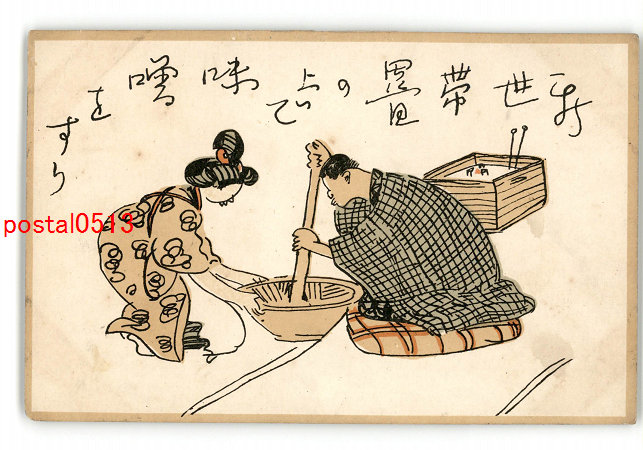 新世帯畳の上で味噌をすり
postal0513